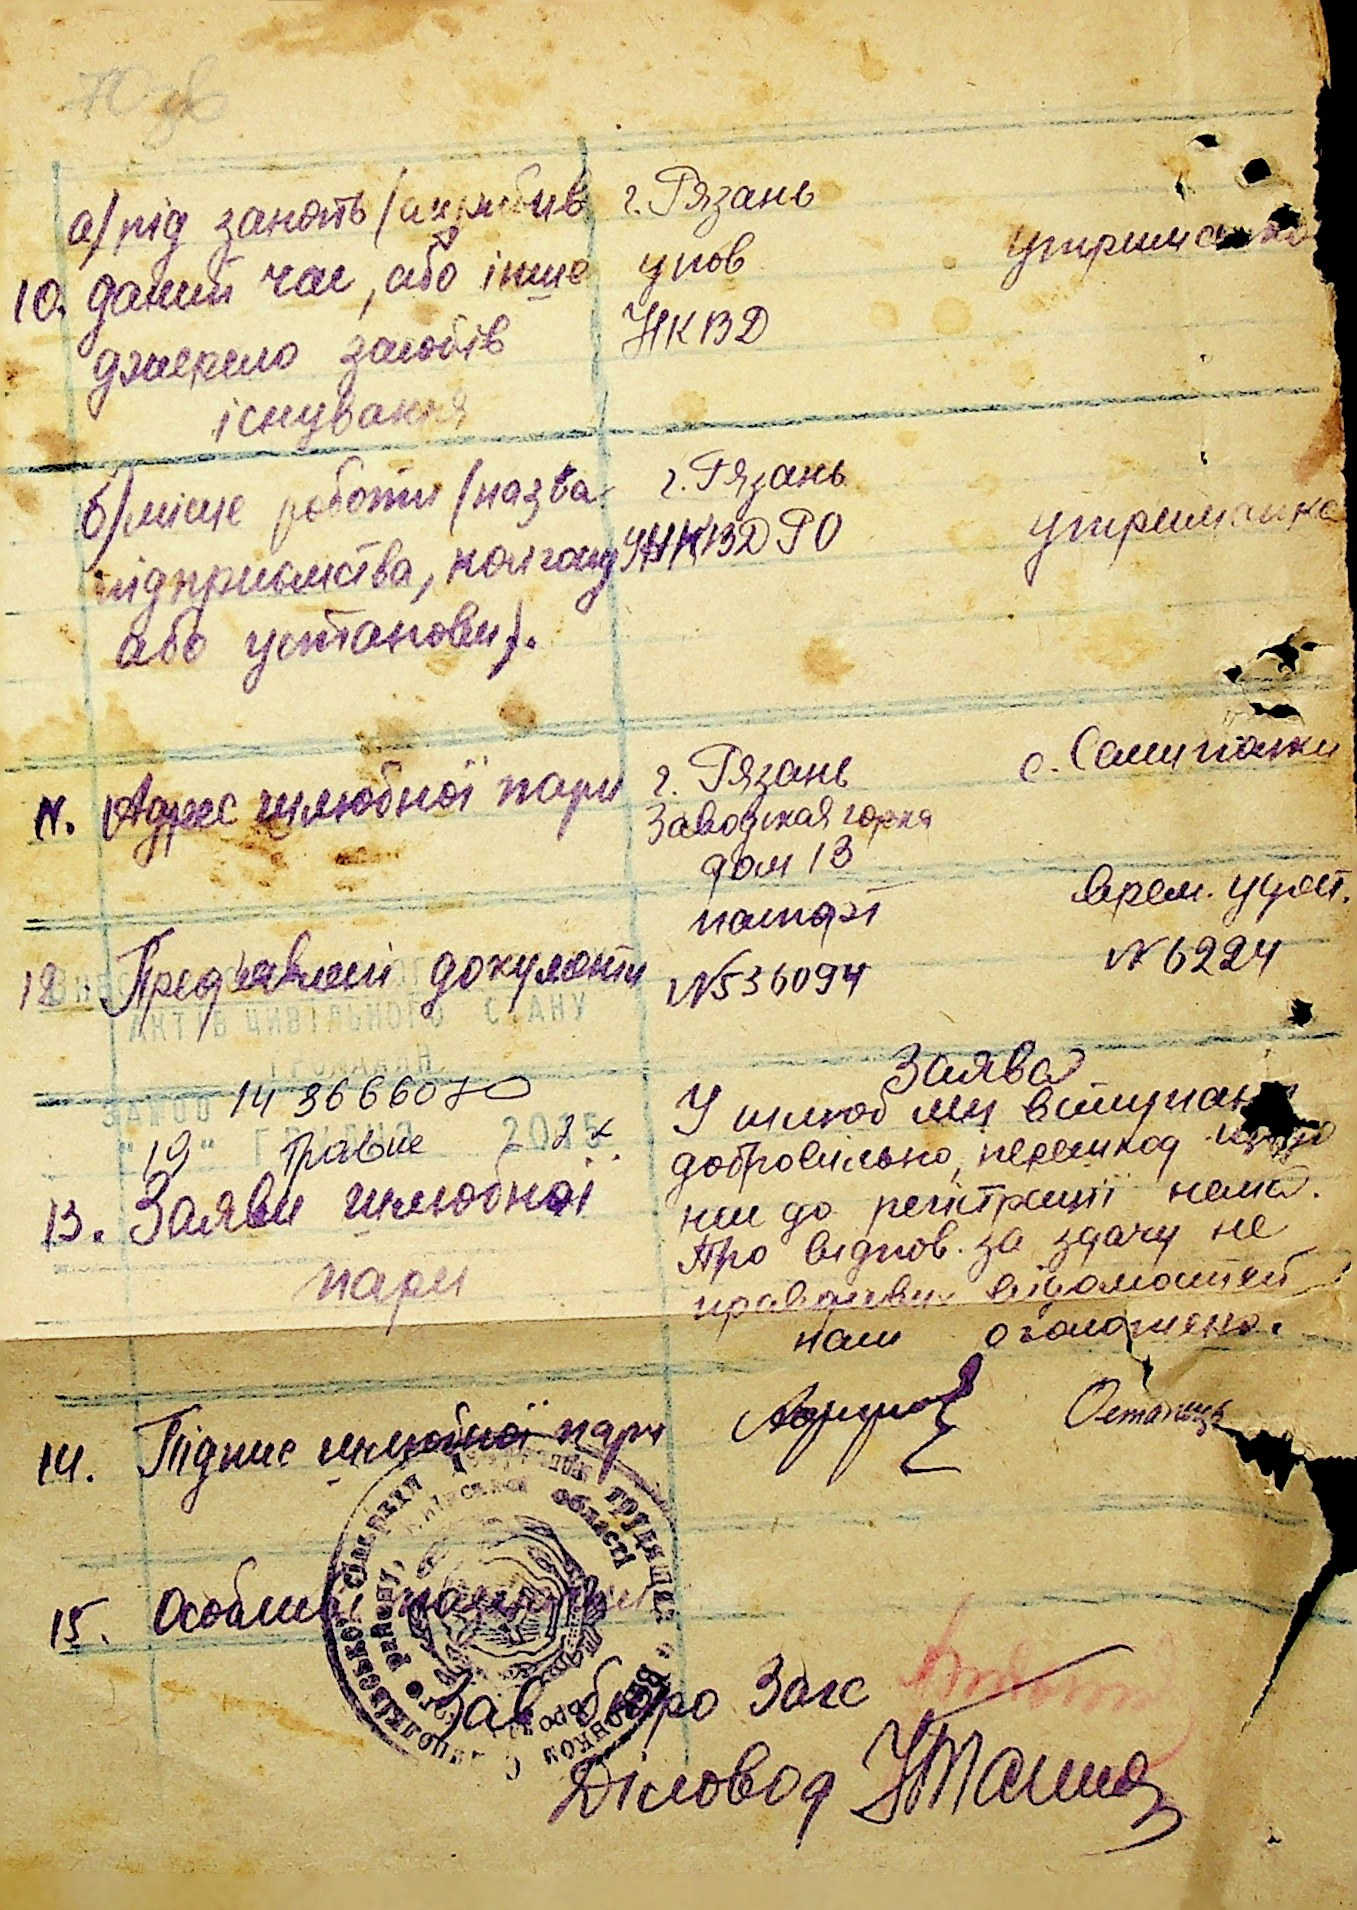 70 зв
а/ рід занять / 
10. даний час, або інше
джерело засобів
існування
г. Рязань
упов
НКВД
утриманка
б/ місце роботи / назва
підприємства, колгоспу
або установи).
г. Рязань
УНКВД РО
утриманка
11. Адрес шлюбної пари
г. Рязань
Заводская горка
дом 13
с. Семиполки
12. Пред'явлені документи
паспорт
№536094
врем. удост.
№ 6224
АКТІВ ЦИВІЛЬНОГО СТАНУ
ГРОМАДЯН
14 3666070
19 травня 2025
13. Заяви шлюбної
пари
Заява
У шлюб ми вступаєм
добровільно, перешкод
ни до регістрації нема.
Про відпов. за здачу не
правдивих відомостей
нам оголошено.
14. Підпис шлюбної пари
Остапець
15. Особливі
Зав бюро Загс
Діловод